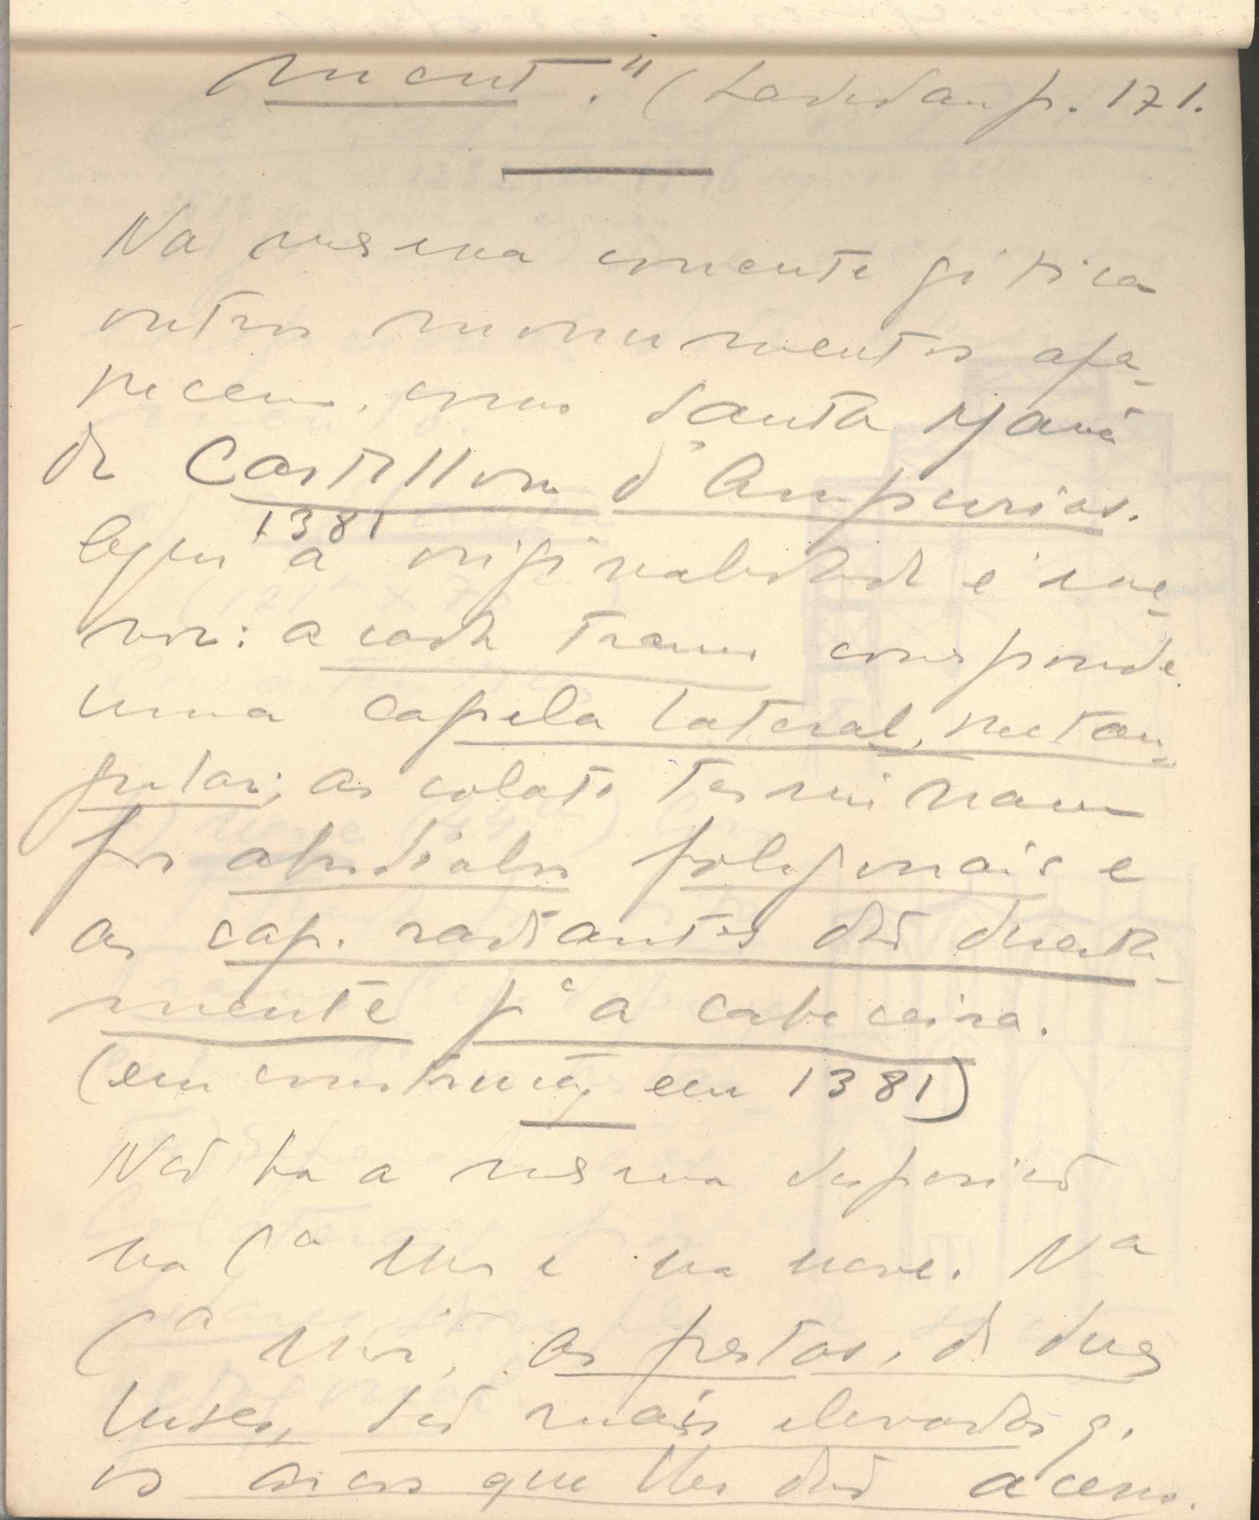 ment." ( Lavedan p. 171.
Na mesma corrente gótica
outros monumentos apa-
recem, como Santa Maria
de Castillon d'Ampurias.
1381
Aqui a originalidade é me-
nor: a cada tramo corresponde
uma capela lateral, rectan-
gular; as colats terminam
por absidiolos poligonais e
as cap. radiantes dão directa-
mente pª a cabeceira.
(em construção em 1381)
Não ha a mesma disposição
na Cª Mor e na nave. Na
Cª Mor, as frestas, de duas
luzes, são mais elevadas q.
os arcos que lhes dão acesso.